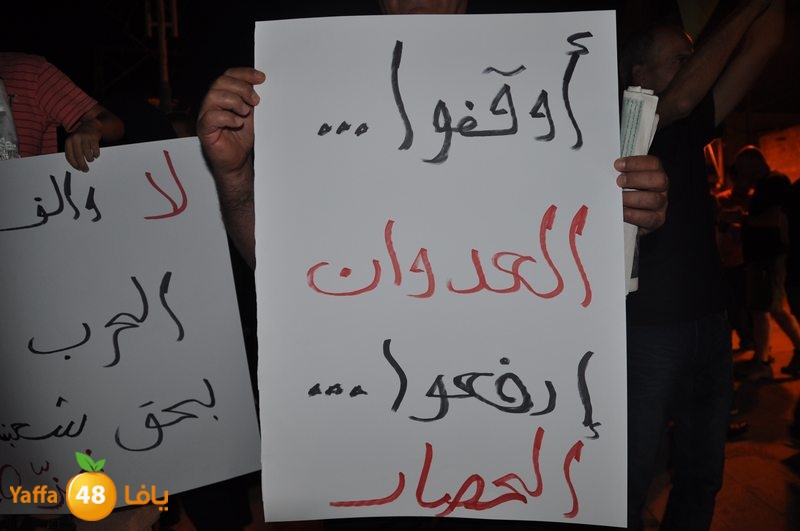 أوقفوا...
العدوان
إرفعوا...
الحصار
لا وألف
الحرب
بحق
Yaffa 48 يافا